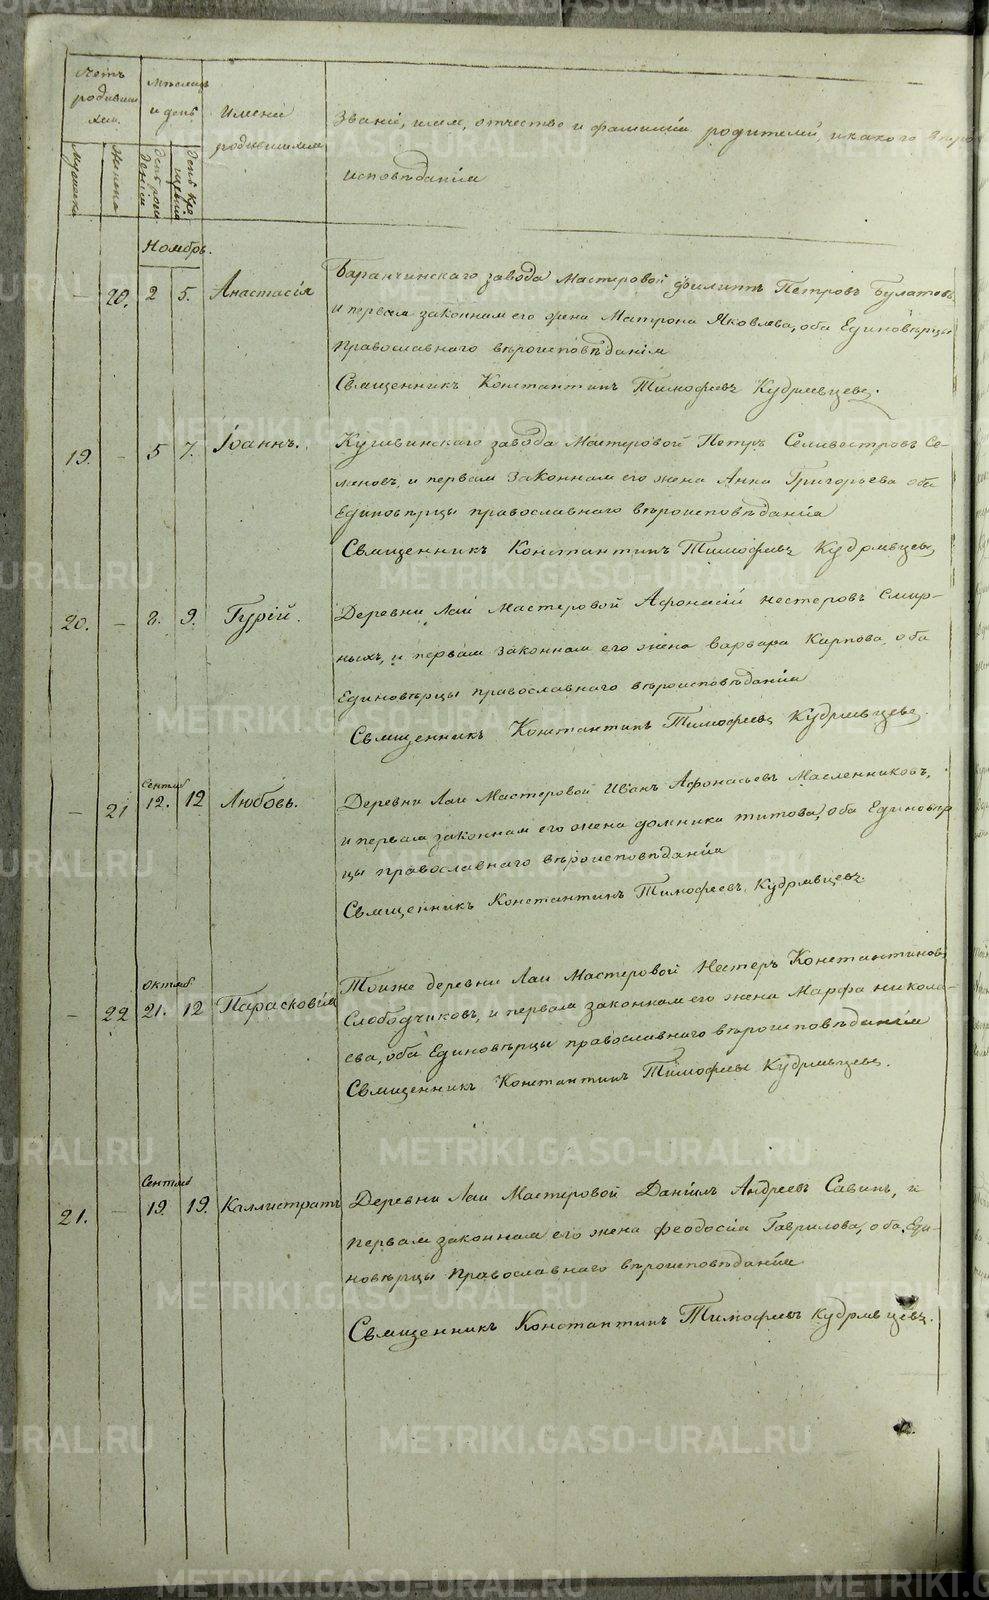 Счетъ родивши
хся.
Мужеска
Женска
Мѣсяцъ
и день
День рож
денія
День кре
щенія
Имена
родившихся
Званіе, имя, отчество и фамилія родителей, и какого вѣро
исповѣданія
Ноябрь.
— 20. 2 5. Анастасія
Баранчинскаго завода Мастеровой Филиппъ Петровъ Булатовъ
и первая законная его жена Матрона Яковлева, оба Единовѣрцы
православнаго вѣроисповѣданія
Священникъ Константинъ Тимофеевъ Кудрявцевъ.
19. — 5 7. Іоаннъ.
Кушвинскаго завода Мастеровой Петръ Селивестровъ Се-
меновъ, и первая законная его жена Анна Григорьева оба
Единовѣрцы православнаго вѣроисповѣданія
Священникъ Константинъ Тимофѣевъ Кудрявцевъ
20. — 8. 9. Гурій.
Деревни Лаи Мастеровой Афонасій Нестеровъ Смир-
ныхъ, и первая законная его жена Варвара Карпова, оба
Единовѣрцы православнаго вѣроисповѣданія
Священникъ Константинъ Тимофеевъ Кудрявцевъ.
Сентяб
— 21 12. 12 Любовь.
Деревни Лаи Мастеровой Иванъ Афонасьевъ Масленниковъ,
и первая законная его жена Домника Титова, оба Единовѣр
цы православнаго вѣроисповѣданія
Священникъ Константинъ Тимофеевъ Кудрявцевъ.
Октяб
— 22 21. 12 Парасковія
Тоиже деревни Лаи Мастеровой Нестеръ Константиновъ
Слободчиковъ, и первая законная его жена Марфа Никола-
ева, оба Единовѣрцы православнаго вѣроисповѣданія
Священникъ Константинъ Тимофеевъ Кудрявцевъ.
Сентяб
21. — 19. 19. Каллистратъ
Деревни Лаи Мастеровой Даніилъ Андреевъ Савинъ, и
первая законная его жена Феодосіа Гаврилова, оба, Еди-
новѣрцы Православнаго вѣроисповѣданія
Священникъ Константинъ Тимофеевъ Кудрявцевъ.
METRIKI.GASO-URAL.RU